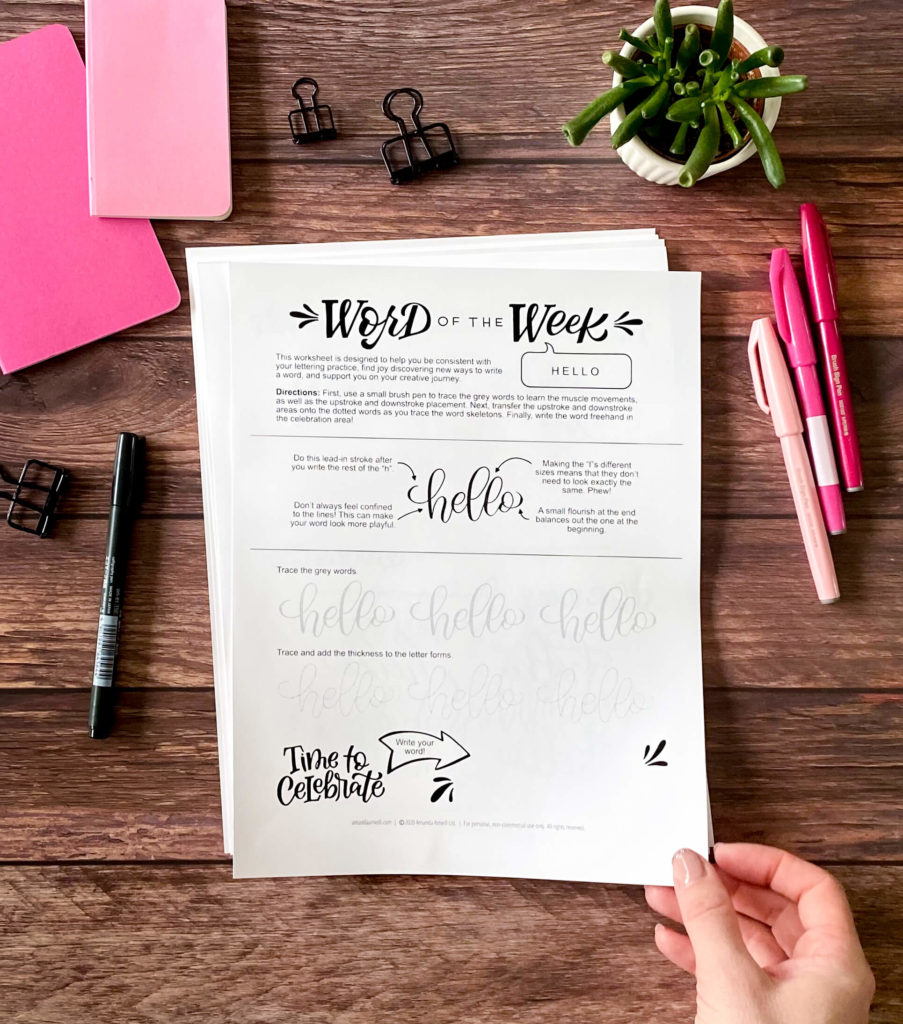 WORD OF THE WEEK
This worksheet is designed to help you be consistent with
your lettering practice, find joy discovering new ways to write
a word, and support you on your creative journey.
HELLO
Directions: First, use a small brush pen to trace the grey words to learn the muscle movements,
as well as the upstroke and downstroke placement. Next, transfer the upstroke and downstroke
areas onto the dotted words as you trace the word skeletons. Finally, write the word freehand in
the celebration area!
Do this lead-in stroke after
you write the rest of the "h".
Don't always feel confined
to the lines! This can make
your word look more playful.
hello
Making the "l"s different
sizes means that they don't
need to look exactly the
same. Phew!
A small flourish at the end
balances out the one at the
beginning.
Trace the grey words.
hello hello hello
Trace and add the thickness to the letter forms.
hello hello hello
Time to
Celebrate
Write your
word!
© 2020 Amanda Arneill Ltd. | For personal, non-commercial use only. All rights reserved.
Brush Sign Pen
Brush Sign Pen